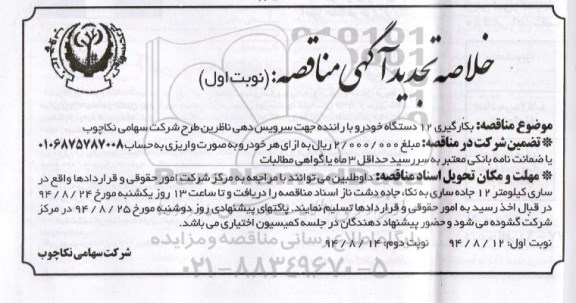 خلاصه تجدید آگهی مناقصه: (نوبت اول)
موضوع مناقصه: بکارگیری ۱۲ دستگاه خودرو با راننده جهت سرویس دهی ناظرین طرح شرکت سهامی نکاچوب
* تضمین شرکت در مناقصه: مبلغ ۲/۰۰۰/۰۰۰ ریال به ازای هر خودرو به صورت واریزی به حساب ۰۱۰۶۸۷۵۷۸۷۰۰۸
یا ضمانت نامه بانکی معتبر به سررسید حداقل ۳ ماه یا گواهی مطالبات
* مهلت و مکان تحویل اسناد مناقصه: داوطلبین می توانند با مراجعه به مرکز شرکت امور حقوقی و قراردادها واقع در
ساری کیلومتر ۱۲ جاده ساری به نکا، جاده دشت ناز اسناد مناقصه را دریافت و تا ساعت ۱۳ روز یکشنبه مورخ ۹۴/۸/۲۴
در قبال اخذ رسید به امور حقوقی و قراردادها تسلیم نمایند. پاکتهای پیشنهادی روز دوشنبه مورخ ۹۴/۸/۲۵ در مرکز
شرکت گشوده می شود و حضور پیشنهاد دهندگان در جلسه کمیسیون اختیاری می باشد.
نوبت اول: ۹۴/۸/۱۲ نوبت دوم: ۹۴/۸/۱۴
شرکت سهامی نکاچوب
۰۲۱-۸۸۳۴۹۶۷۰-۵